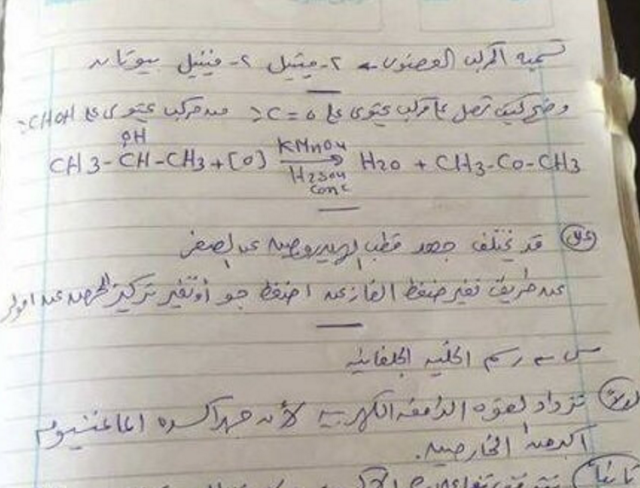 تسمية المركب العضوى ← ٢- ميثيل ٢- فينيل بيوتان
وضح كيف نحصل على مركب يحتوى على C=O من مركب يحتوى على CHOH
OH
CH3-CH-CH3 + [O] KMnO4 H2SO4 conc → H2O + CH3-CO-CH3
علل قد يختلف جهد قطب الهيدروجين عن الصفر
عن طريق تغير ضغط الغاز عن ١ ضغط جو أو تغير تركيز الحمض عن ١مولر
من رسم الخلية الجلفانية
أولاً تزداد القوة الدافعة الكهربية لأن جهد أكسدة الماغنسيوم
أكبر من الخارصين.
ثانياً